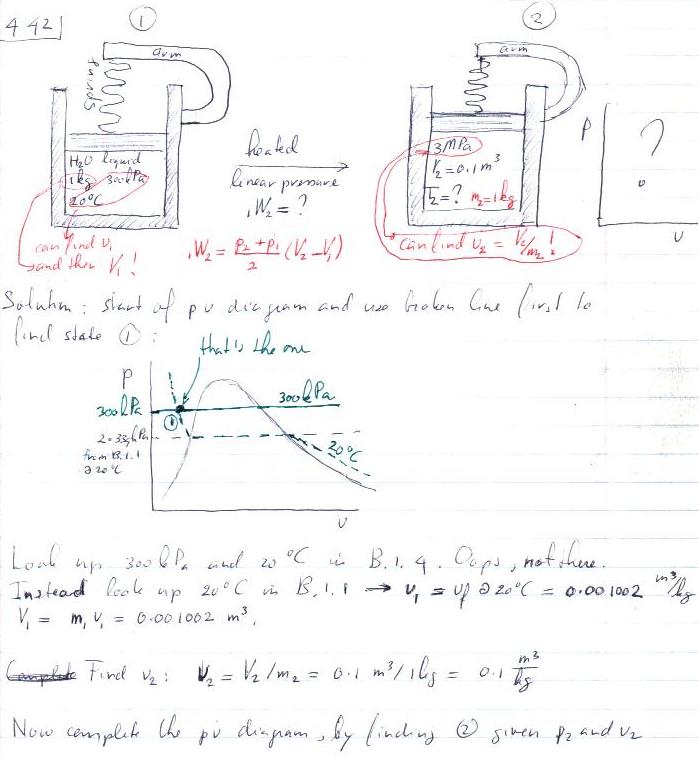 4 42
①
②
arm
spring
H₂O liquid
1kg 300kPa
20°C
can find v₁
and then V₁!
heated
linear pressure
₁W₂ = ?
₁W₂ = (p₂ + p₁)/2 (V₂ - V₁)
arm
3MPa
V₂ = 0.1 m³
T₂ = ? m₂ = 1kg
can find v₂ = V₂/m₂!
P
?
υ
Solution: start of pv diagram and use broken line first to
find state ①:
that's the one
P
300kPa
300kPa
①
2.339kPa
from B.1.1
@20°C
20°C
υ
Look up 300kPa and 20°C in B.1.4. Oops, not there.
Instead look up 20°C in B.1.1 → v₁ = vf @ 20°C = 0.001002 m³/kg
V₁ = m₁v₁ = 0.001002 m³.
Complete Find v₂: v₂ = V₂/m₂ = 0.1 m³/1kg = 0.1 m³/kg
Now complete the pv diagram, by finding ② given p₂ and v₂